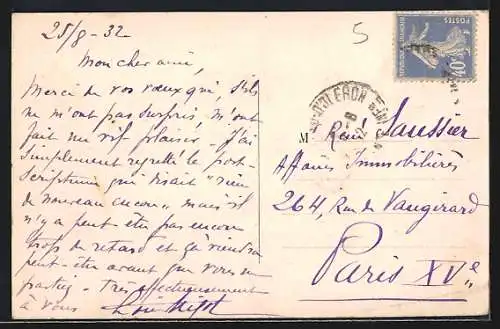 25/8-32
5
Mon cher ami,
Merci de vos vœux qui, s'ils
ne m'ont pas surpris, m'ont
fait un vif plaisir. J'ai
simplement regretté le post-
scriptum qui disait "rien
de nouveau encore" mais il
n'y a peut être pas encore
trop de retard et ça viendra
peut-être avant que vous ne
partiez - Très affectueusement
à vous
POSTES
40c
M René Saussier
Affaires Immobilières
264, Rue de Vaugirard
Paris XVe